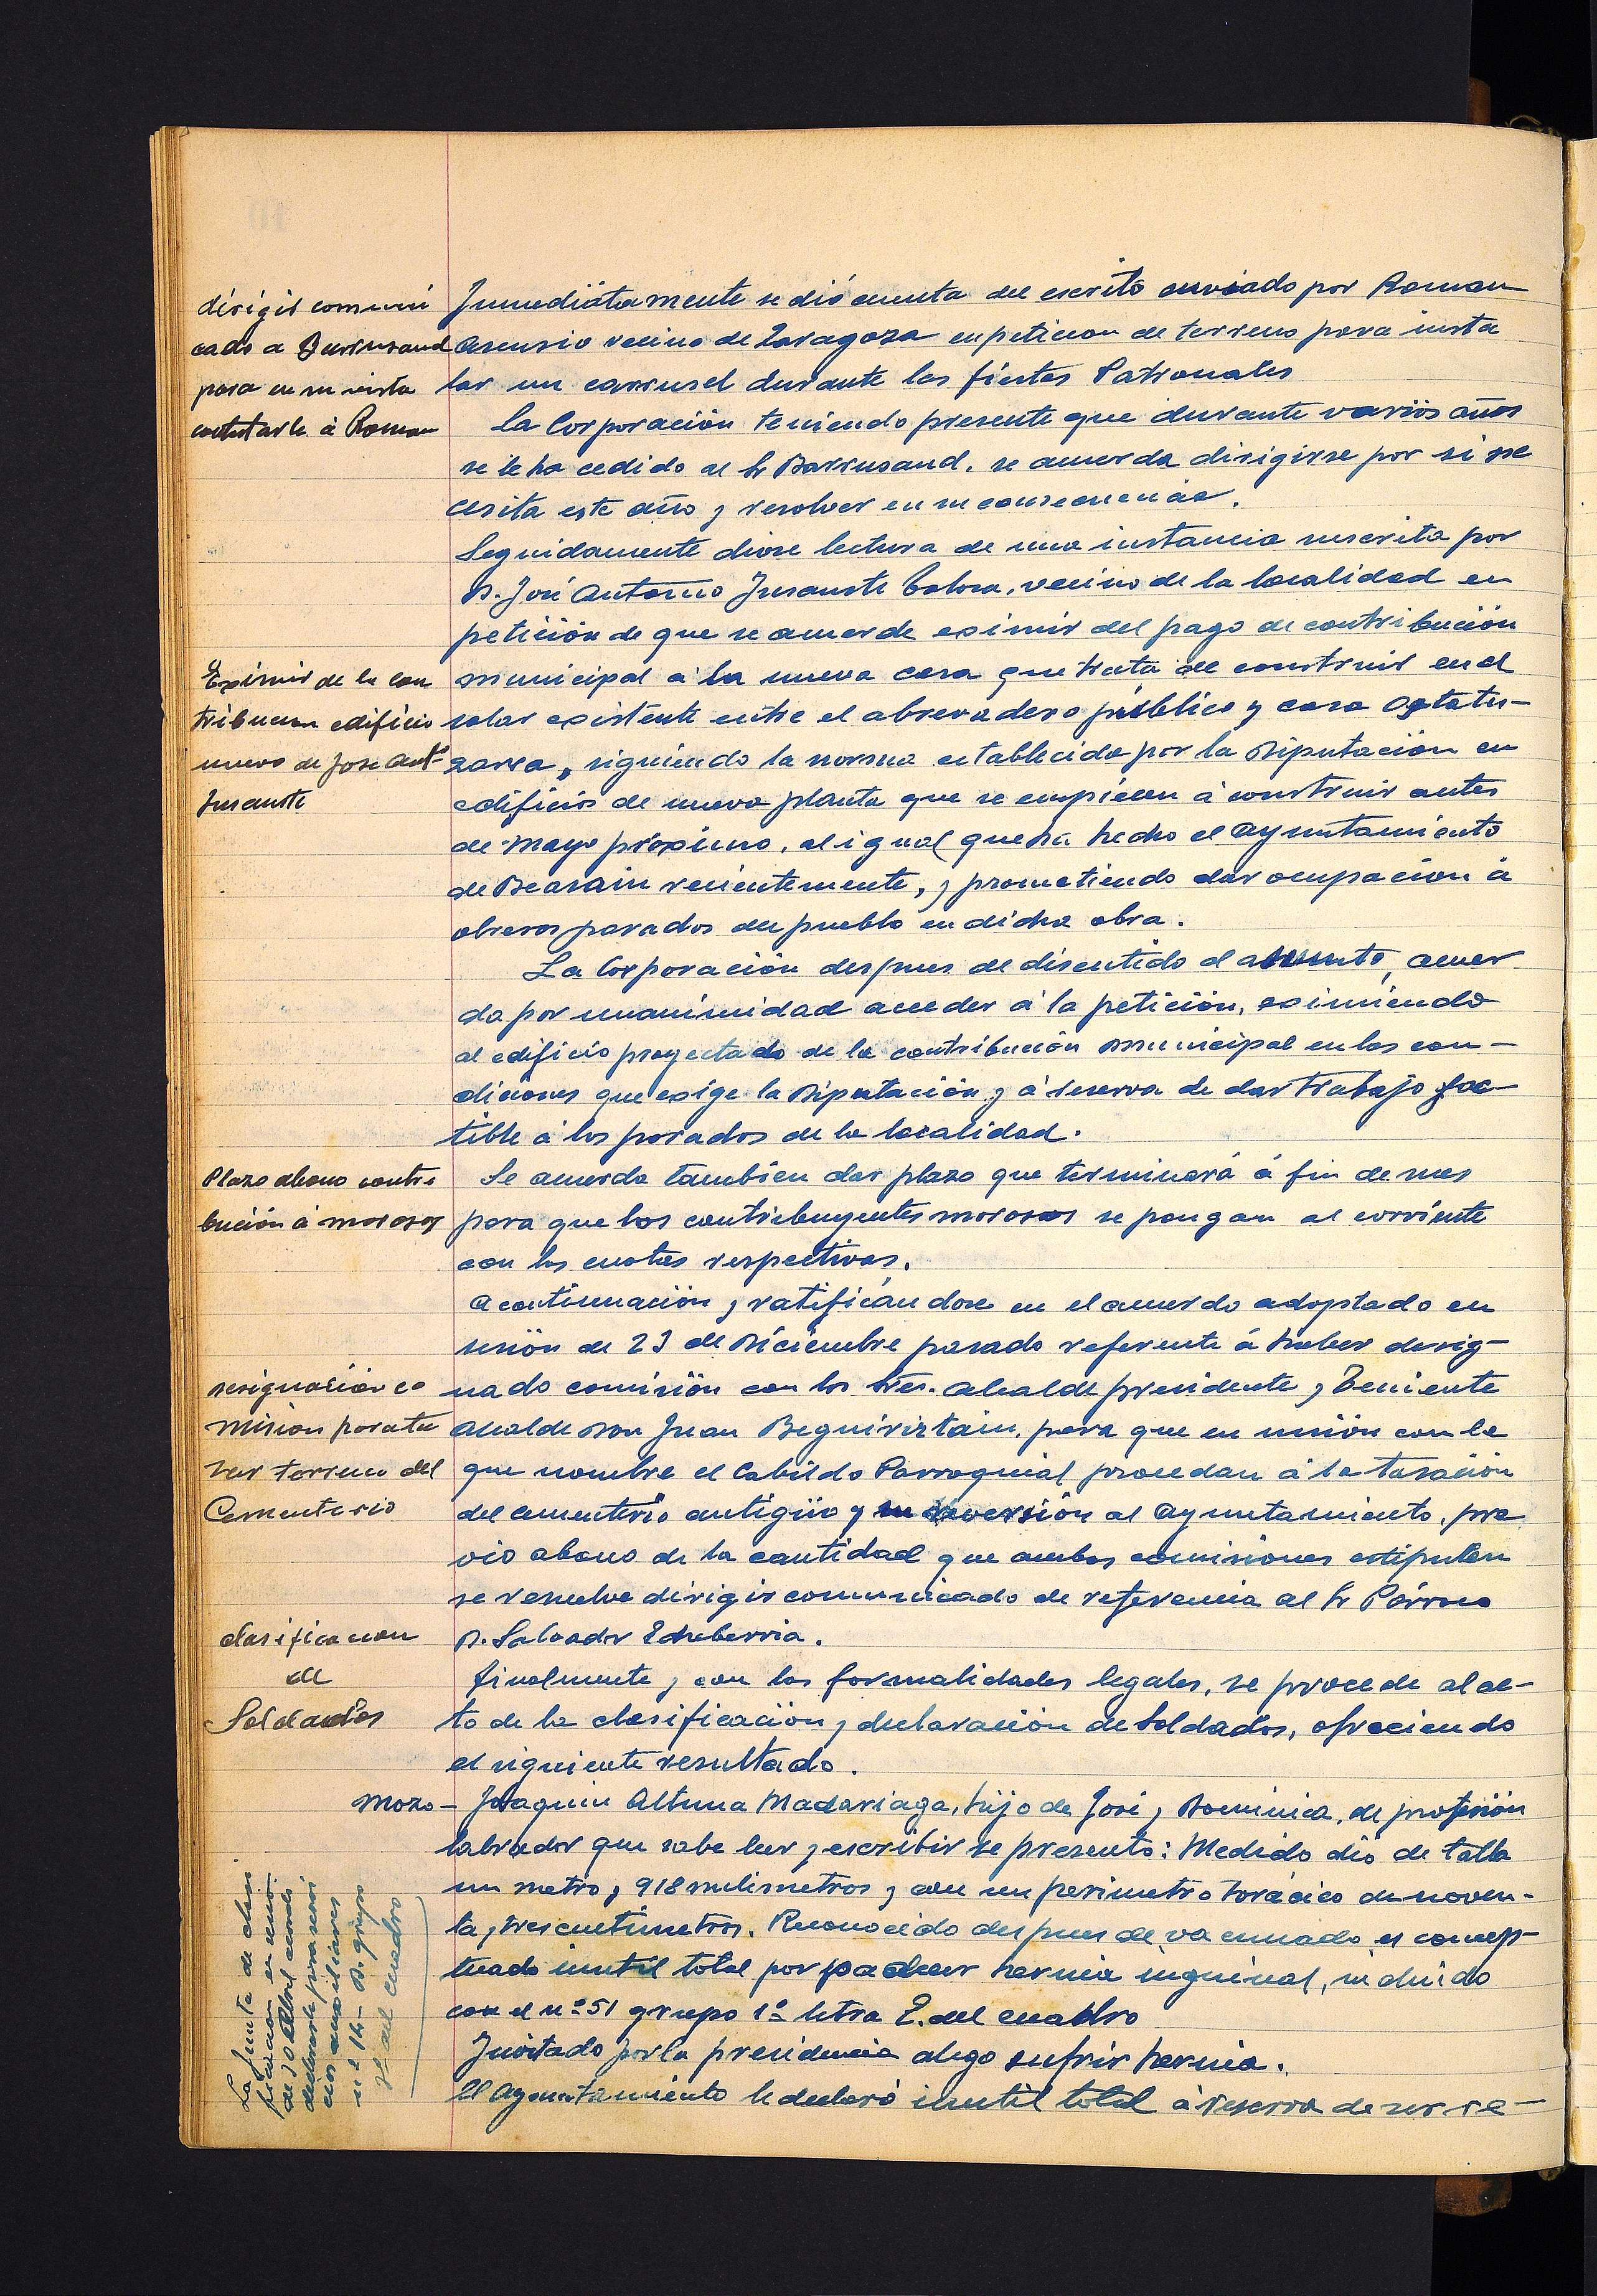 dirigir comuni
cado a Burrusaud
para en su vista
contestarle á Roman
Inmediatamente se dió cuenta del escrito enviado por Roman
Asensio vecino de Zaragoza en peticion de terreno para insta
lar un carrusel durante las fiestas Patronales
La Corporación teniendo presente que durante varios años
se le ha cedido al Sr Barrusaud, se acuerda dirigirse por si ne
cesita este año y resolver en su consecuencia.
Seguidamente diose lectura de una instancia suscrita por
D. José Antonio Insausti Tolosa, vecino de la localidad en
petición de que se acuerde eximir del pago de contribución
Eximir de la con
tribucion edificio
nuevo de Jose Antº
Insausti
municipal a la nueva casa que trata de construir en el
solar existente entre el abrevadero público y casa Ostatu-
zarra, siguiendo la norma establecida por la Diputación en
edificios de nueva planta que se empiecen á construir antes
de Mayo próximo, al igual que ha hecho el Ayuntamiento
de Beasain recientemente, y prometiendo dar ocupación á
obreros parados del pueblo en dicha obra.
La Corporación despues de discutido el asunto, acuer
da por unanimidad acceder á la petición, eximiendo
al edificio proyectado de la contribución municipal en las con-
diciones que exige la Diputación y á reserva de dar trabajo fac-
tible á los parados de la localidad.
Plazo abono contri
bución á morosos
Se acuerda tambien dar plazo que terminará á fin de mes
para que los contribuyentes morosos se pongan al corriente
con las cuotas respectivas.
A continuación y ratificándose en el acuerdo adoptado en
sesión de 23 de Diciembre pasado referente á haber desig-
designación co
mision para ta
sar terreno del
Cementerio
nado comisión con los Sres. Alcalde presidente y Teniente
Alcalde Don Juan Beguiristain, para que en unión con la
que nombre el Cabildo Parroquial procedan á la tasación
del cementerio antigüo y su reversión al Ayuntamiento, pre
vio abono de la cantidad que ambas comisiones estipulen
se resuelve dirigir comunicado de referencia al Sr Párroco
D. Salvador Echeberria.
Clasificacion
de
Soldados
Finalmente y con las formalidades legales, se procede al ac-
to de la clasificación y declaración de Soldados, ofreciendo
el siguiente resultado.
Mozo- Joaquin Altuna Madariaga, hijo de José y Dominica, de profesión
labrador que sabe leer y escribir se presentó: Medido dió de talla
un metro y 918 milimetros y con un perimetro torácico de noven-
ta y tres centimetros. Reconocido despues de vacunado es concep-
tuado inutil total por padecer hernia inguinal, incluido
con el nº 51 grupo 1º letra E. del cuadro
Invitado por la presidencia alegó sufrir hernia.
El Ayuntamiento le declaró inutil total á reserva de ser re-
La Junta de clasi
ficacion en sesion
de 30 Abril acordó
declararle para servi
cios auxiliares
nº 14- D. grupo
2º del cuadro